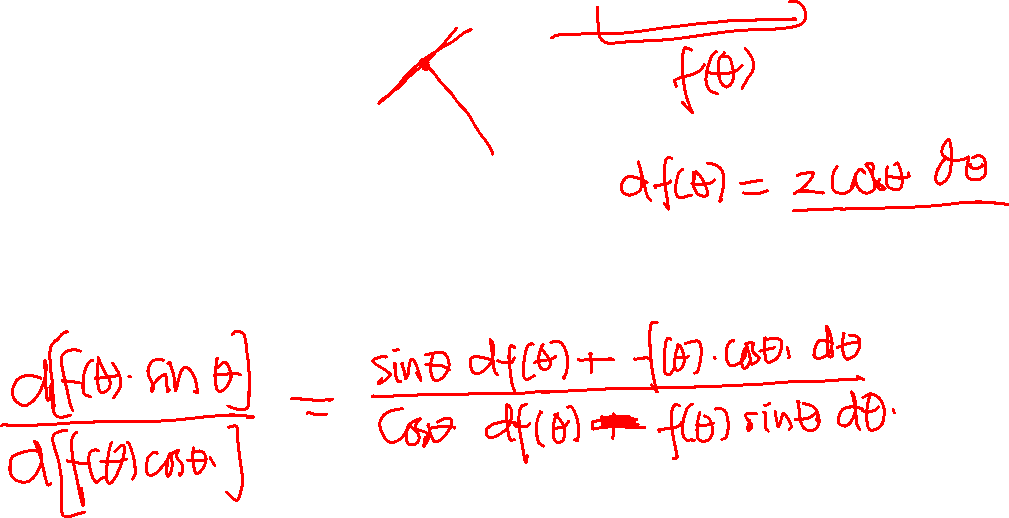 f(θ)
df(θ) = 2cosθ dθ
d[f(θ)·sinθ] / d[f(θ)cosθ] = sinθ df(θ) + f(θ)·cosθ dθ / cosθ df(θ) - f(θ) sinθ dθ